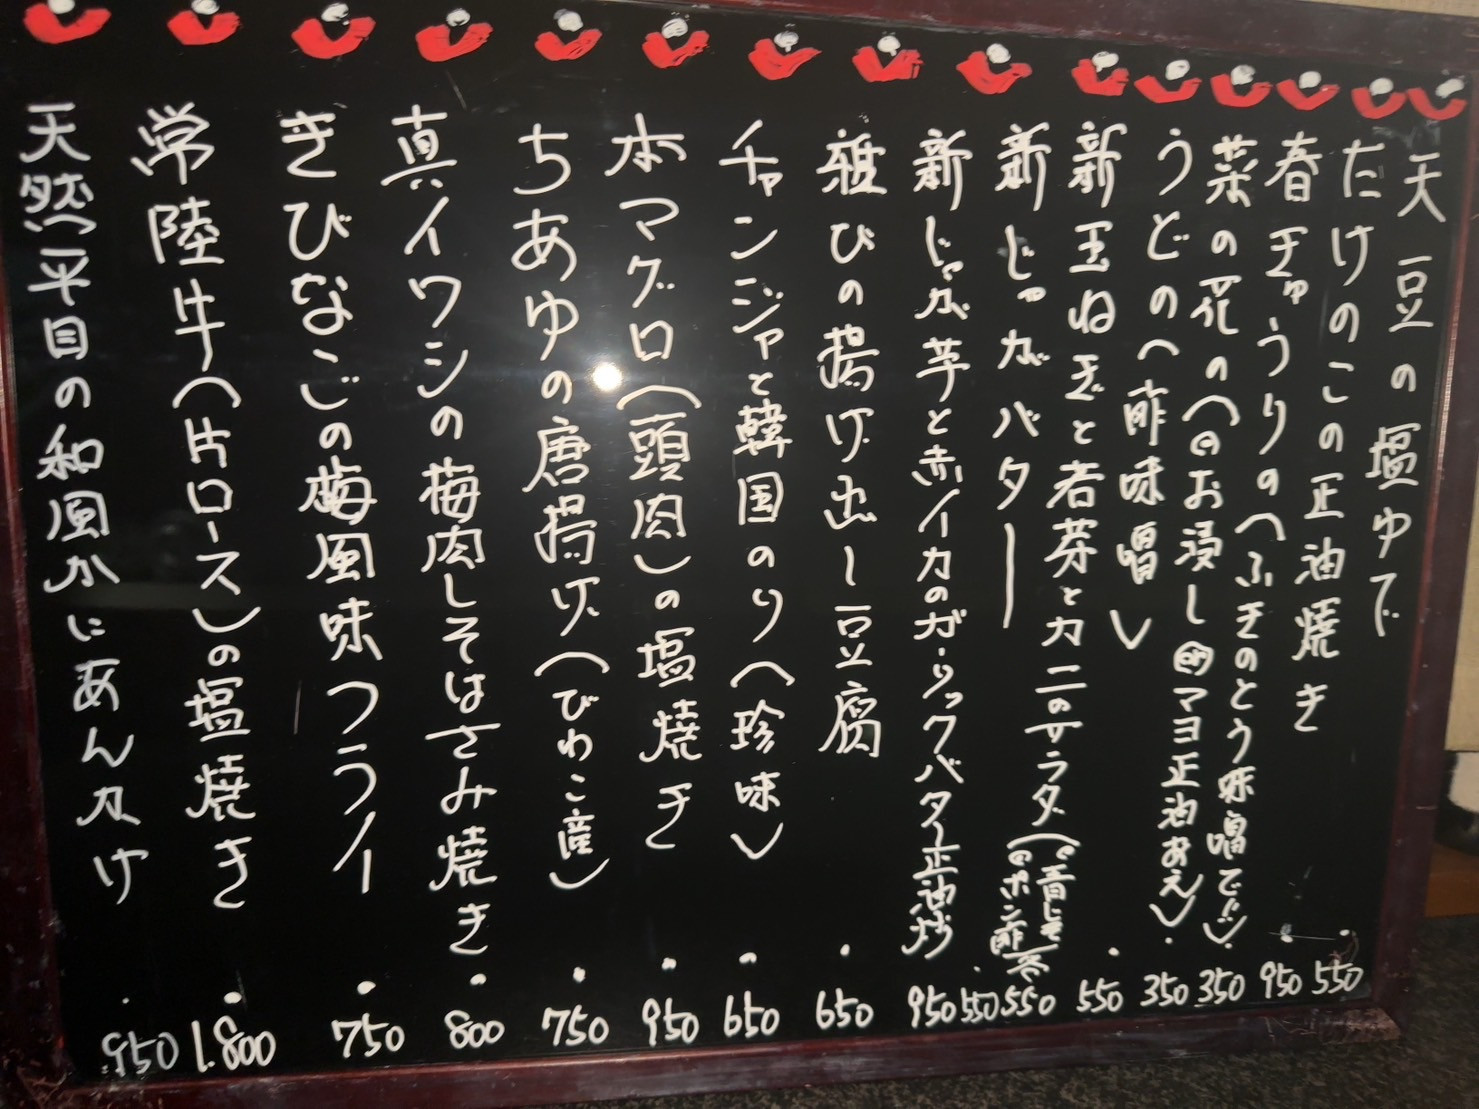 天豆の塩ゆで ・550
たけのこの正油焼き ・950
春きゅうりの(ふきのとう味噌で) ・350
菜の花の(お浸し マヨ正油あえ) ・350
うどの(酢味噌) ・550
新玉ねぎと若芽とカニのサラダ(青じそ ポン酢) 550
新じゃがバター ・550
新じゃが芋と赤イカのガーリックバター正油炒 950
雅びの揚げ出し豆腐 ・650
チャンジャと韓国のり(珍味) ・650
本マグロ(頭肉)の塩焼き ・950
ちあゆの唐揚げ(びわこ産) ・750
真イワシの梅肉しそはさみ焼き ・800
きびなごの梅風味フライ ・750
常陸牛(片ロース)の塩焼き ・1.800
天然平目の和風かにあんかけ ・950